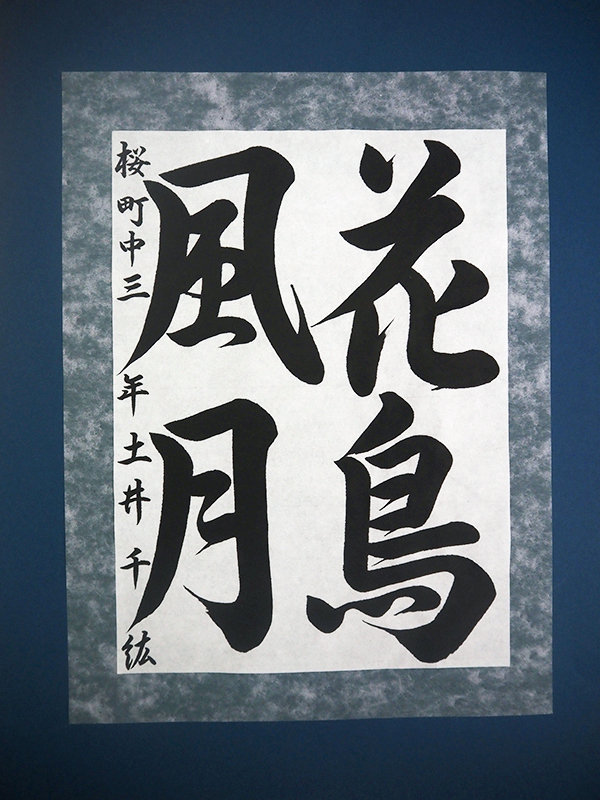 花鳥
風月
桜町中三年土井千紘